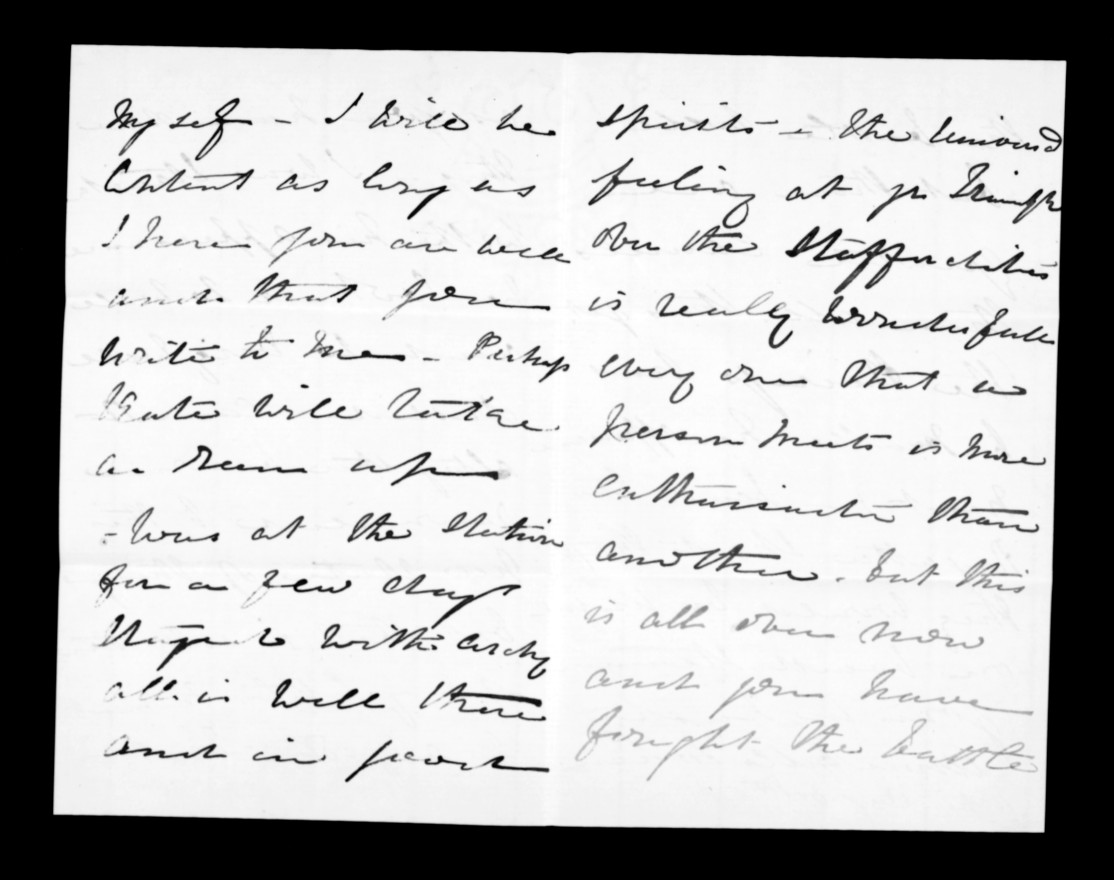 Myself - I will be
Content as long as
I know you are well
and that you
write to me - Perhaps
Kate will take
a run up
- was at the Station
for a few days
Stayed with Archy
all is well there
and in good
spirits - the
feeling at yr Triumph
over the Staffordites
is really wonderful
every one that a
person meets is more
enthusiastic than
another. but this
is all over now
and you have
fought the battle